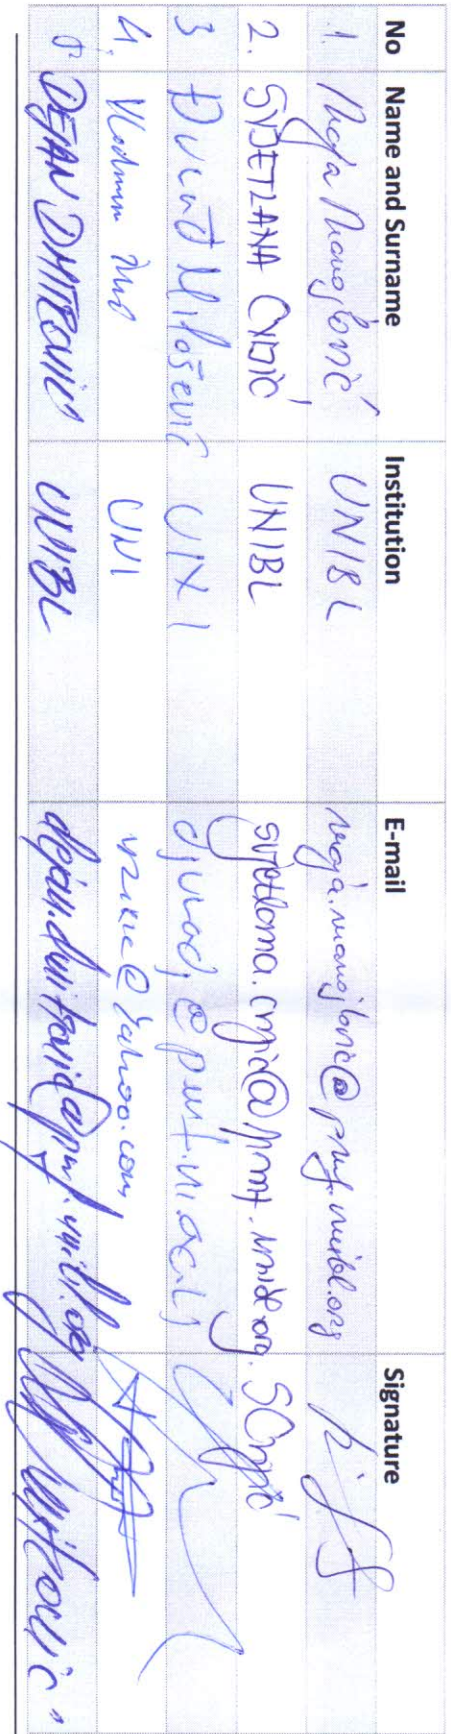 No Name and Surname Institution E-mail Signature
1. Maja Manojlović UNIBL maja.manojlovic@pmf.unibl.org
2. SVJETLANA CVIJIĆ UNIBL svjetlana.cvijic@pmf.unibl.org SCvijić
3 Đurađ Milošević UNI djuradj@pmf.ni.ac.rs
4. Vladimir UNI vzikic@yahoo.com
5 DEJAN DMITROVIĆ UNIBL dejan.dmitrovic@pmf.unibl.org